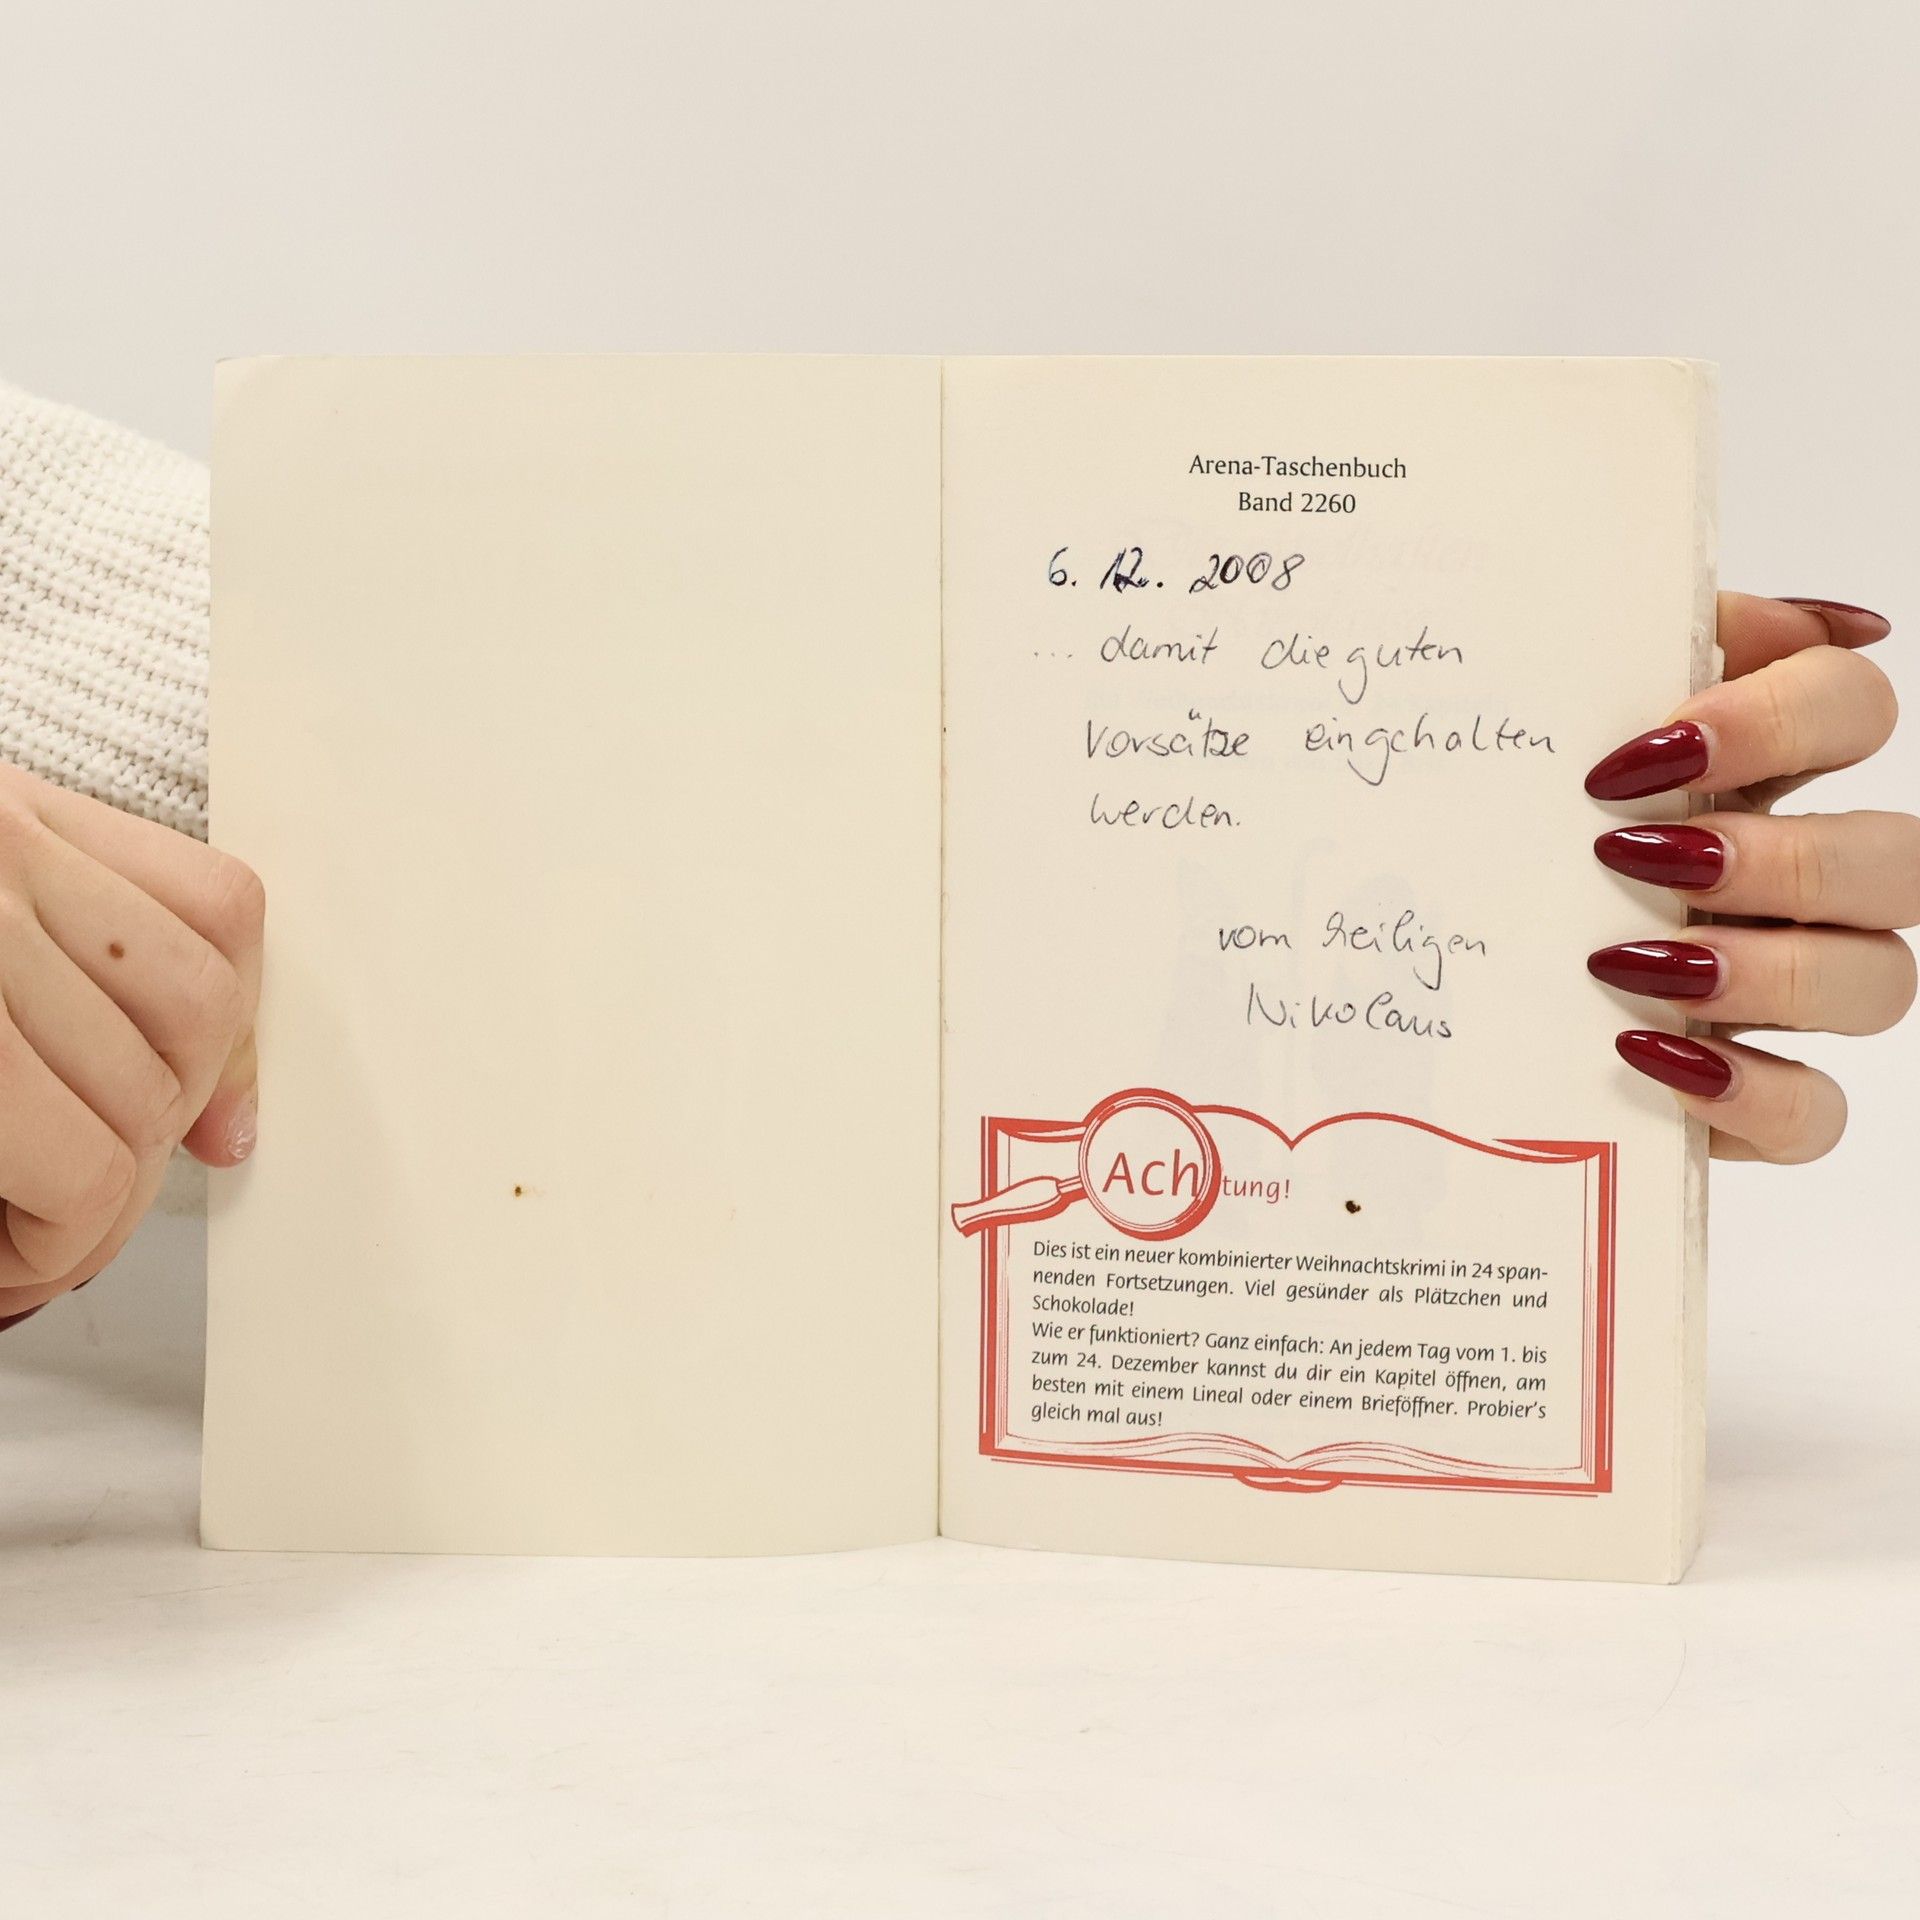 Arena-Taschenbuch
Band 2260
6. 12. 2008
... damit die guten
Vorsätze eingehalten
werden.
vom heiligen
Nikolaus
Achtung!
Dies ist ein neuer kombinierter Weihnachtskrimi in 24 span-
nenden Fortsetzungen. Viel gesünder als Plätzchen und
Schokolade!
Wie er funktioniert? Ganz einfach: An jedem Tag vom 1. bis
zum 24. Dezember kannst du dir ein Kapitel öffnen, am
besten mit einem Lineal oder einem Brieföffner. Probier's
gleich mal aus!